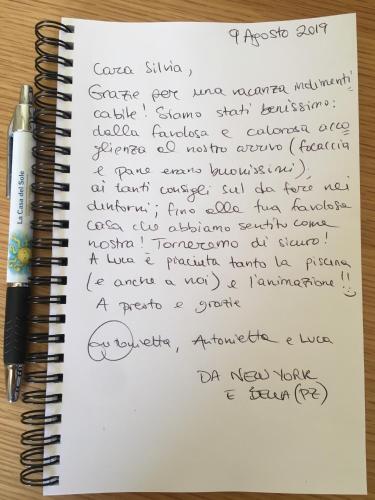 La Casa del Sole
9 Agosto 2019
Cara Silvia,
Grazie per una vacanza indimenti
cabile! Siamo stati benissimo:
dalla favolosa e calorosa acco
glienza al nostro arrivo (focaccia
e pane erano buonissimi),
ai tanti consigli sul da fare nei
dintorni; fino alla tua favolosa
casa che abbiamo sentito come
nostra! Torneremo di sicuro!
A Luca è piaciuta tanto la piscina
(e anche a noi) e l'animazione!!
A presto e grazie
Antonietta e Luca
DA NEW YORK
E BELLA (PZ)